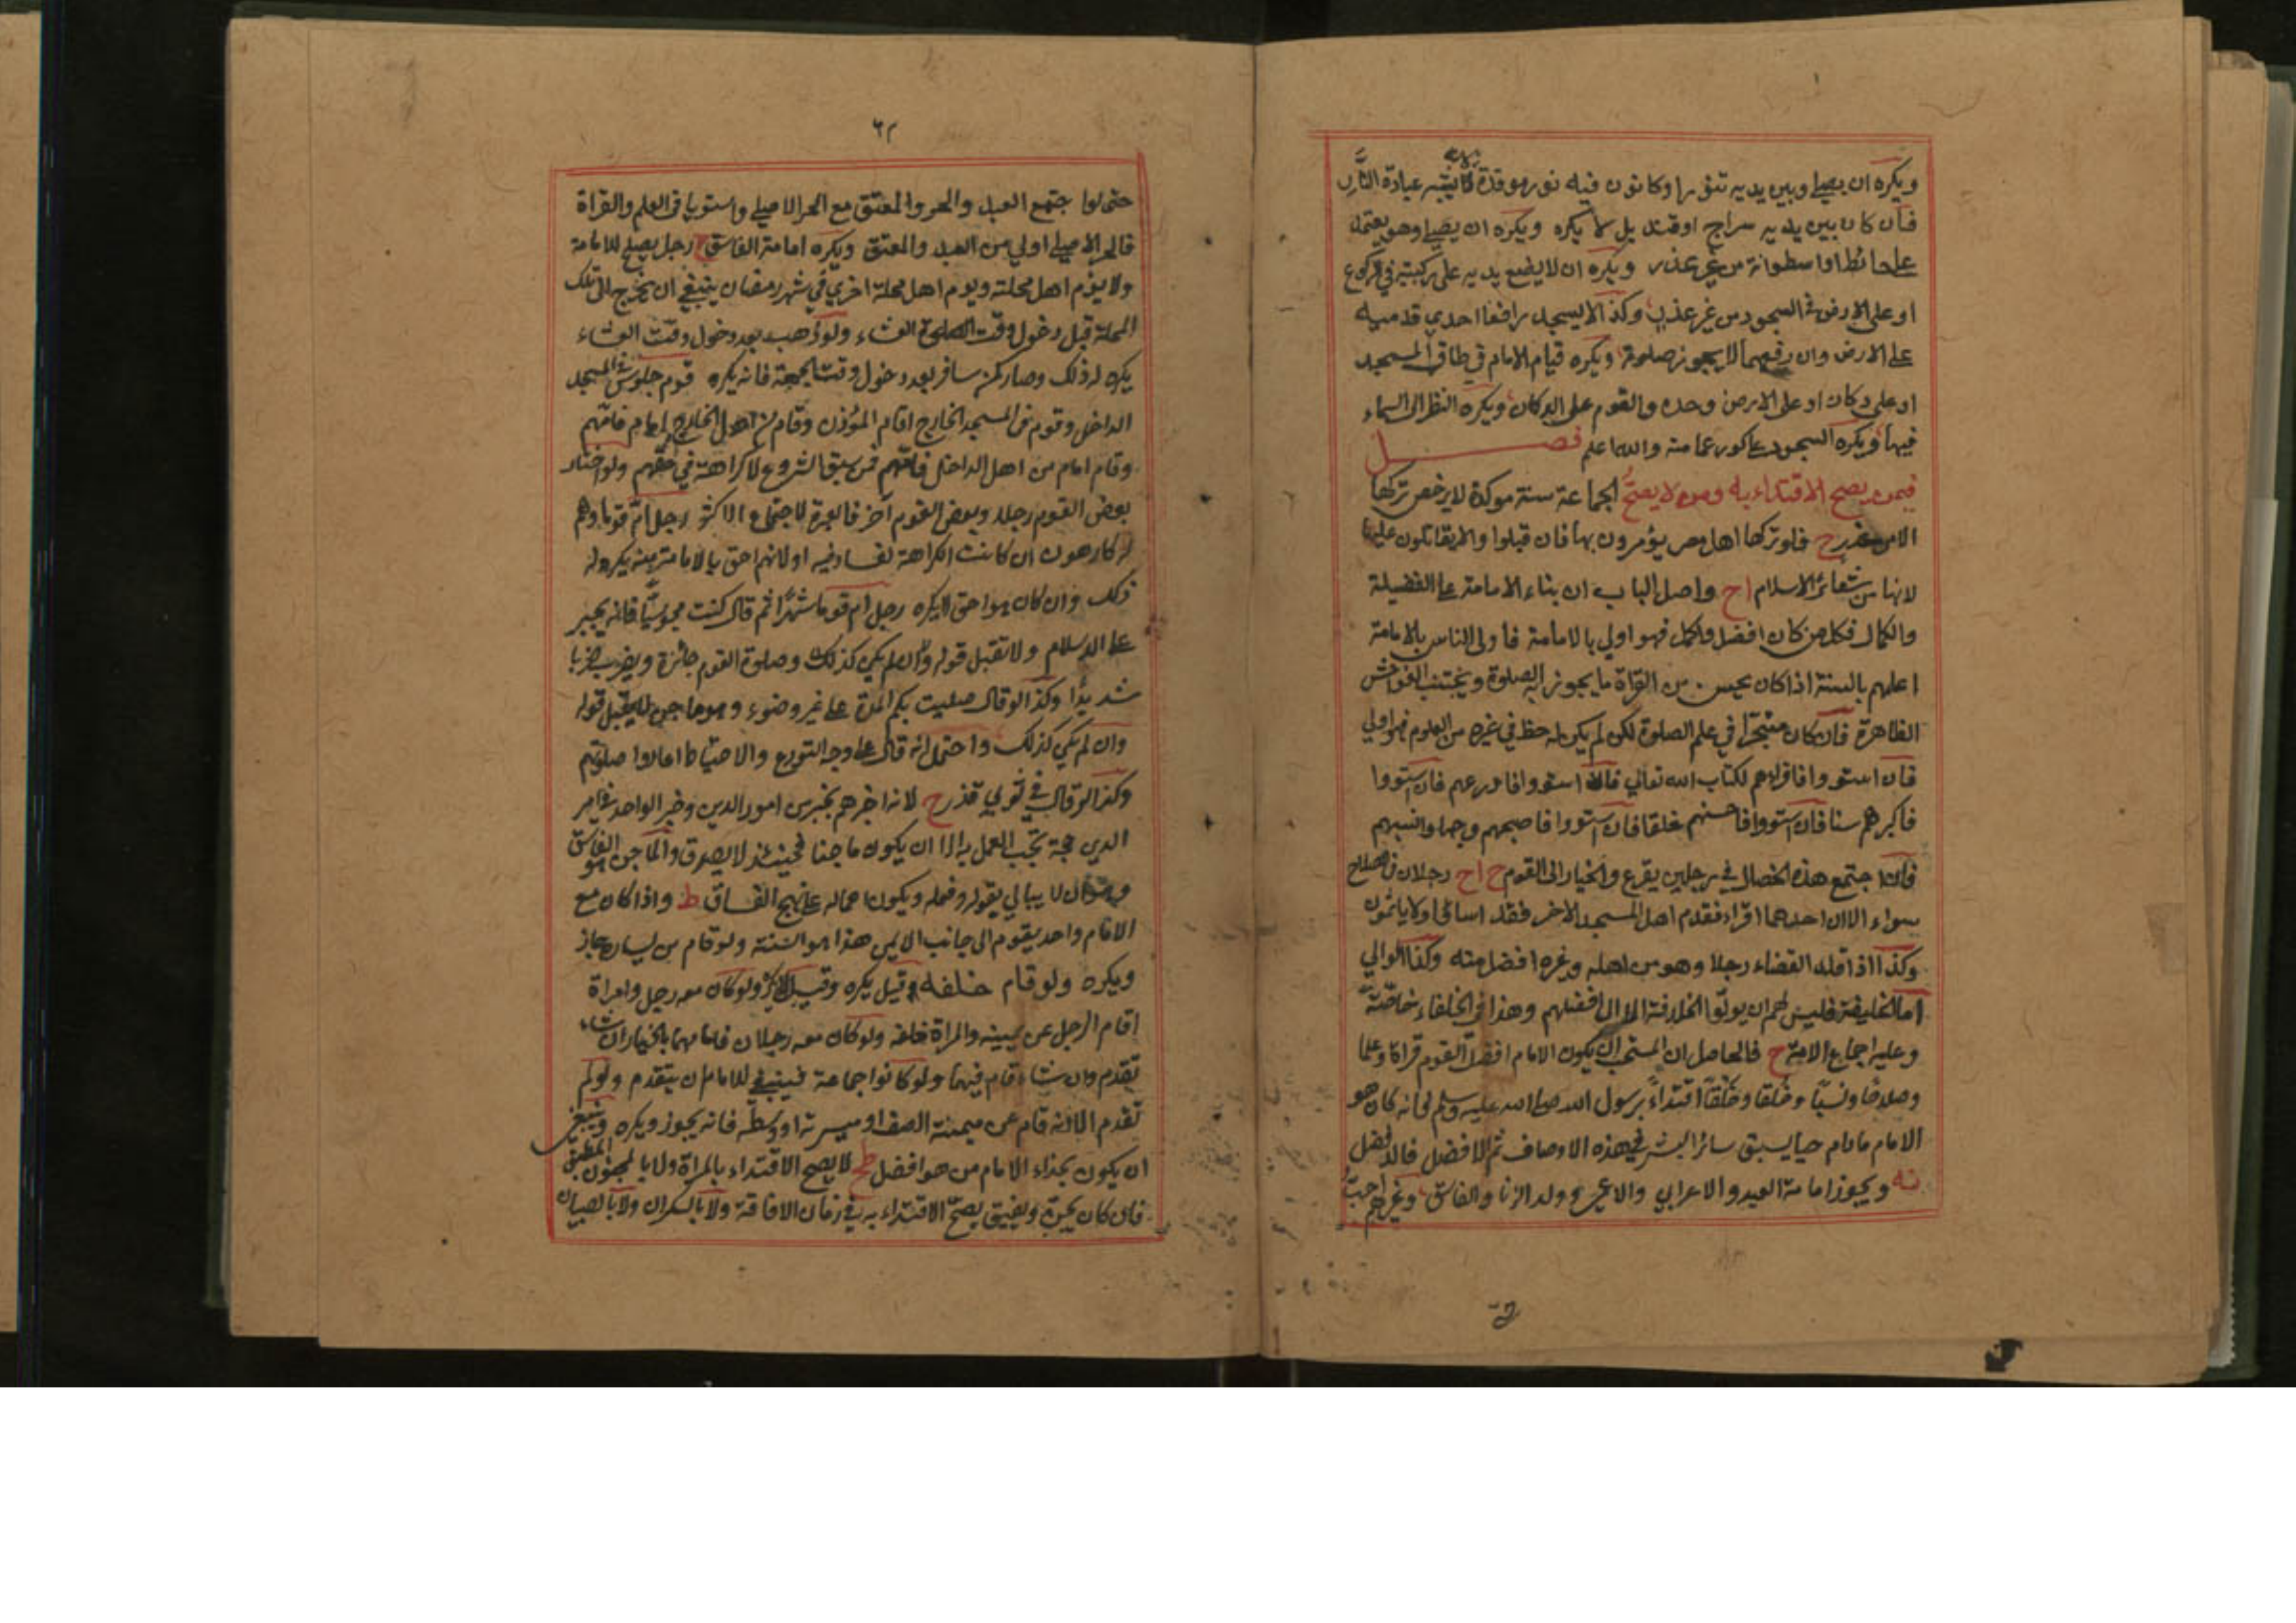 ويكره ان يصلي وبين يديه تنور او كانون فيه نار موقدة لانه يشبه عبادة النار
فان كان بين يديه سراج او قنديل لا يكره ويكره ان يصلي وهو يعتمد
على حائط او اسطوانة من غير عذر ويكره ان لا يضع يديه على ركبتيه في الركوع
او على الارض في السجود من غير عذر وكذا لا يسجد رافعا احدي قدميه
على الارض وان رفعهما لا يجوز صلوته ويكره قيام الامام في طاق المسجد
او على دكان او على الارض وحده والقوم على الدكان ويكره النظر الى السماء
فيها ويكره السجود على كور عمامته والله اعلم فصل
فيمن يصح الاقتداء به ومن لا يصح الجماعة سنة موكدة لا يرخص تركها
الا من عذر ح فلو تركها اهل مصر يؤمرون بها فان قبلوا والا يقاتلون عليها
لانها من شعائر الاسلام اح واصل الباب ان بناء الامامة على الفضيلة
والكمال فكل من كان افضل واكمل فهو اولي بالامامة فاولى الناس بالامامة
اعلمهم بالسنة اذا كان يحسن من القراة ما يجوز به الصلوة ويجتنب الفواحش
الظاهرة فان كان متبحرا في علم الصلوة لكن لم يكن له حظ في غيره من العلوم فهو اولي
فان استووا فاقراهم لكتاب الله تعالي فان استووا فاورعهم فان استووا
فاكبرهم سنا فان استووا فاحسنهم خلقا فان استووا فاصبحهم وجها وانسبهم
فان اجتمع هذه الخصال في رجلين يقرع والخيار الى القوم ح اح رجلان في الصلاح
سواء الا ان احدهما اقراء فقدم اهل المسجد الاخر فقد اساؤا ولا ياثمون
وكذا اذا قلد القضاء رجلا وهو من اهله وغيره افضل منه وكذا الوالي
اما الخليفة فليس لهم ان يولوا الخلافة الا الى افضلهم وهذا في الخلفاء خاصة
وعليه اجماع الامة ح فالحاصل ان المستحب ان يكون الامام افضل القوم قراة وعلما
وصلاحا ونسبا وخلقا وخلقا اقتداء برسول الله صلى الله عليه وسلم فانه كان هو
الامام ما دام حيا يسبق سائر البشر في هذه الاوصاف ثم الافضل فالافضل
نه ويجوز امامة العبد والاعرابي والاعمي وولد الزنا والفاسق وغيرهم احب
٦٢
حتى لو اجتمع العبد والحر والمعتق مع الحر الاصلي واستويا في العلم والقراة
فالحر الاصلي اولي من العبد والمعتق ويكره امامة الفاسق ح رجل يصلح للامامة
ولا يؤم اهل محلته ويوم اهل محلة اخري في شهر رمضان ينبغي ان يخرج الى تلك
المحلة قبل دخول وقت الصلوة العشاء ولو ذهب بعد دخول وقت العشاء
يكره له ذلك وصار كمن سافر بعد دخول وقت الجمعة فانه يكره قوم جلوس في المسجد
الداخل وقوم في المسجد الخارج اقام المؤذن وقام من اهل الخارج امام فامهم
وقام امام من اهل الداخل فامهم فمن سبق الشروع لا كراهة في حقهم ولو اختار
بعض القوم رجلا وبعض القوم آخر فالعبرة لاجتماع الاكثر رجل ام قوما وهم
له كارهون ان كانت الكراهة لفساد فيه او لانهم احق بالامامة منه يكره له
ذلك وان كان هو احق لا يكره رجل ام قوما شهرا ثم قال كنت مجوسيا فانه يجبر
على الاسلام ولا تقبل قوله وان لم يكن كذلك وصلوة القوم جائزة ويضرب ضربا
شديدا وكذا لو قال صليت بكم المدة على غير وضوء وهو ماجن لا يقبل قوله
وان لم يكن كذلك واحتمل انه قال على وجه التورع والاحتياط اعادوا صلوتهم
وكذا لو قال في ثوبي قذر ح لانه اخبرهم بخبر من امور الدين وخبر الواحد في امر
الدين حجة تجب العمل به الا ان يكون ماجنا فحينئذ لا يصدق والماجن هو الفاسق
وهو ان لا يبالي بقوله وفعله ويكون اعماله على نهج الفساق ط واذا كان مع
الامام واحد يقوم الى جانب الايمن هذا هو السنة ولو قام من يساره جاز
ويكره ولو قام خلفه قيل يكره وقيل لا يكره ولو كان معه رجل وامراة
اقام الرجل عن يمينه والمراة خلفه ولو كان معه رجلان فامامهما بالخيار ان شاء
تقدم وان شاء قام فيها ولو كانوا جماعة فينبغي للامام ان يتقدم ولو لم
تقدم الا انه قام عن ميمنة الصف او ميسرته او وسطه فانه يجوز ويكره وينبغي
ان يكون بحذاء الامام من هو افضل ط لا يصح الاقتداء بالمراة ولا بالمجنون المطبق
فان كان يجن ويفيق يصح الاقتداء به في زمان الافاقة ولا بالسكران ولا بالصبيان